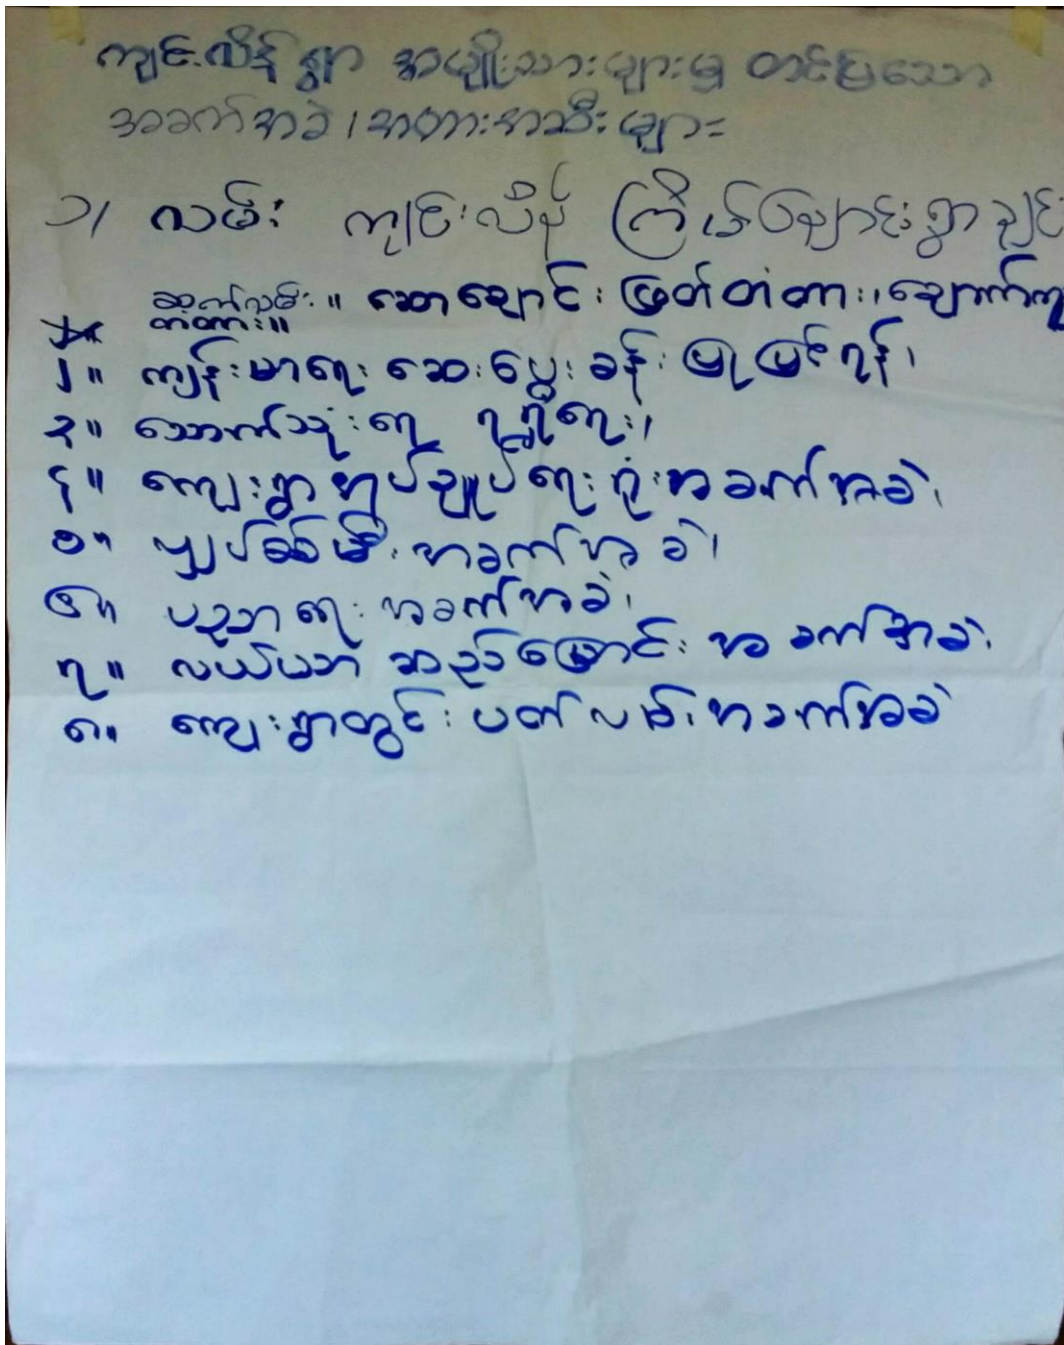 ကျင်းလိန်ရွာ အမျိုးသားများမှ တင်ပြသော
အခက်အခဲ၊ အတားအဆီးများ
၁/ လမ်း ကျင်းလိန် ကြိမ်ချောင်းရွာချင်း
ဆက်လမ်း။ ဆောချောင်း ဖြတ်တံတား၊ ချောက်ကူ
တံတား။
၂။ ကျန်းမာရေး ဆေးပေးခန်း ပြုပြင်ရန်၊
၃။ သောက်သုံးရေ ရရှိရေး၊
၄။ ကျေးရွာအုပ်ချုပ်ရေးရုံးအခက်အခဲ၊
၅။ လျှပ်စစ်မီး အခက်အခဲ၊
၆။ ပညာရေး အခက်အခဲ၊
၇။ လယ်ယာ ဆည်မြောင်း အခက်အခဲ၊
၈။ ကျေးရွာတွင်း ပတ်လမ်းအခက်အခဲ